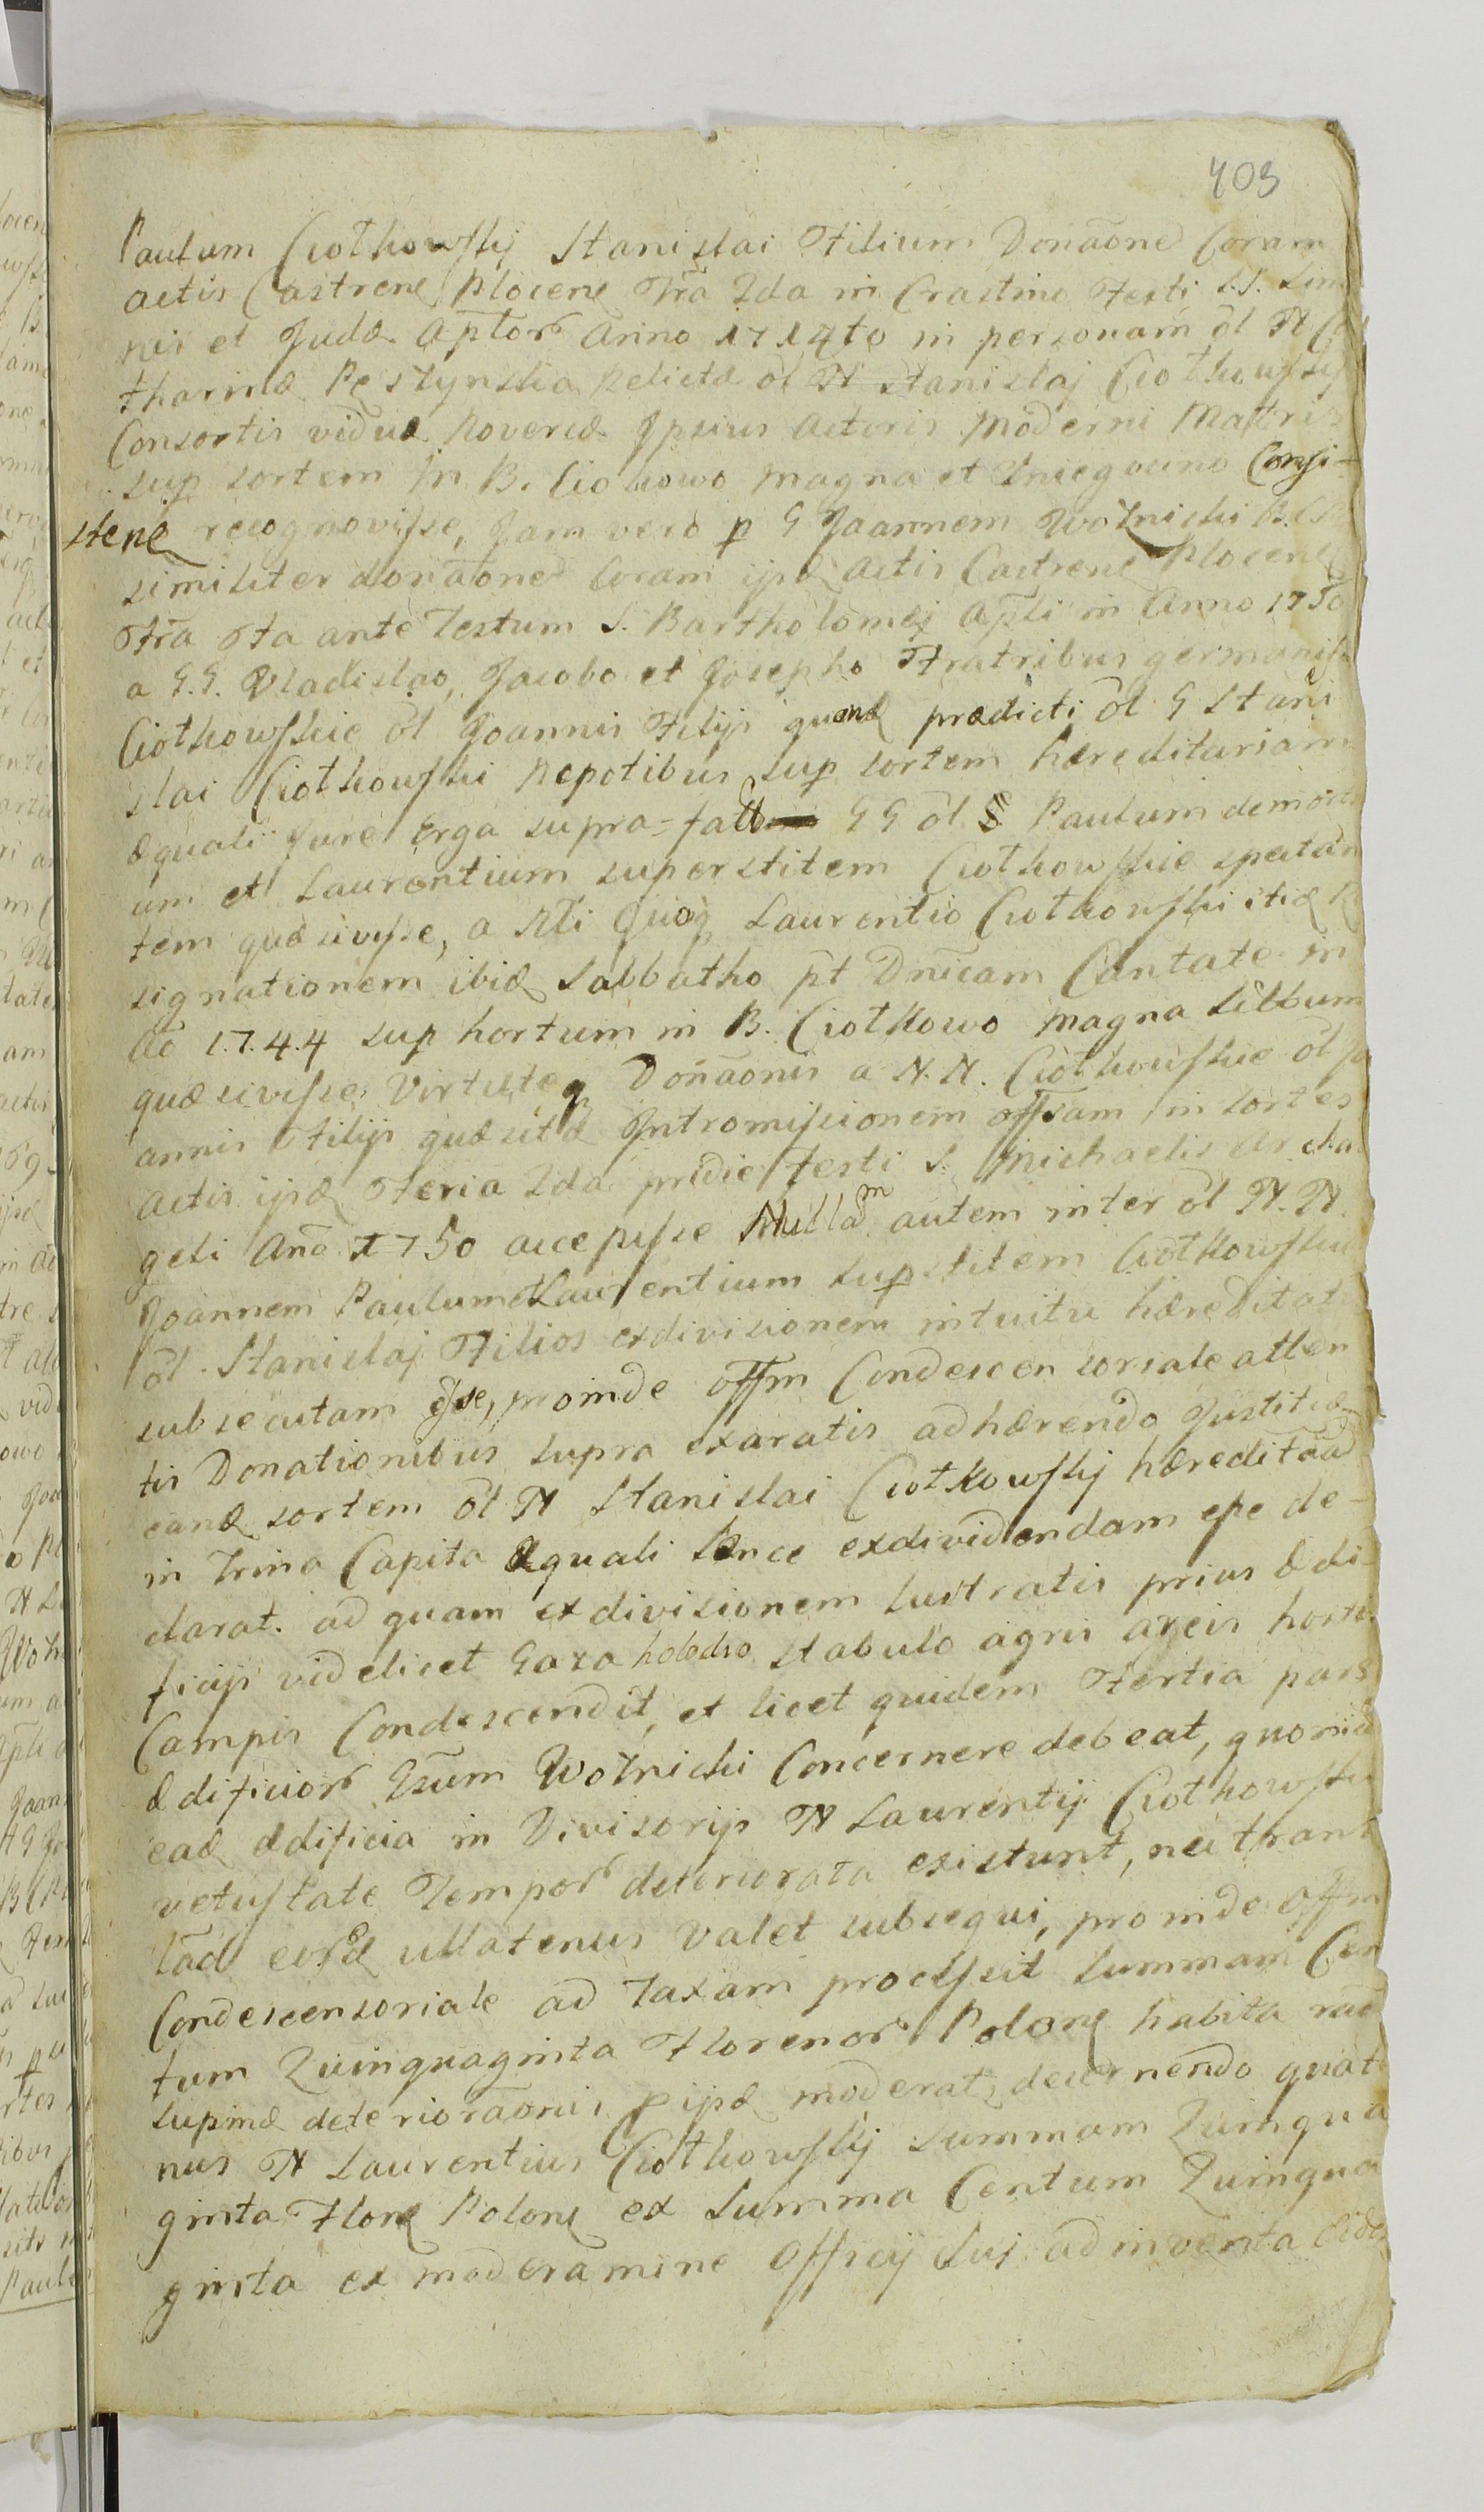 403
Paulum Ciotkowskij Stanislai Filium Donaõne Coram
actis Castrenẽ Plocenẽ Fra 2da in Crastino Festi S.S. Simo
nis et Judæ Aptor Anno 1714to in personam õl N Ca
tharinæ Pestynska Relictæ õl N Stanislaj Ciotkowskij
Consortis viduæ Novercæ Ipsius Actoris Moderni Matris
sup sortem in B. Ciotkowo Magna et Sniegocino Consi-
stenẽ recognovisse, Jam vero p G Joannem Woznicki B.C.P.
similiter donaõne Coram ijsd Actis Castrenẽ Plocenẽ
Fra 6ta ante Festum S. Bartholomej Apli in Anno 1750
a G.G. Vladislao, Jacobo et Josepho Fratribus germanis
Ciotkowskie õl Joannis Filijs quond prædicti õl G Stani
slai Ciotkowski Nepotibus sup sortem hæreditariam
æquali Jure Erga supra=fatt GG õl Paulum demortu
um et Laurentium superstitem Ciotkowskie spectan
tem quæsivisse, a Nli Quoq Laurentio Ciotkowski itid Re
signationem ibid Sabbatho pt Dnicam Cantate in
Ao 1.7.4.4 sup hortum in B. Ciotkowo Magna situm
quæsivisse, Virtuteq Donaõnis a N.N. Ciotkowskie õl Jo
annis Filijs quæsitæ Intromissionem offsam in sortes
Actis ijsd Feria 2da pridie Festi S. Michaelis Archan
geli Ano 1750 accepisse Nullam autem inter õl N.N.
Joannem Paulum et Laurentium supstitem Ciotkowskie
õl Stanislaj Filios exdivisionem intuitu hæreditat
subsecutam esse, proinde offm Condescensoriale atten
tis Donationibus supra exaratis adhærendo Justitiæ
eand sortem õl N Stanislai Ciotkowskij hæreditaã
in Trina Capita Æquali Lance exdividendam esse de-
clarat. ad quam exdivisionem lustratis prius ædi
ficijs videlicet Gaza holedro stabulo agris areis hortis
Campis Condescendit, et licet quidem Tertia pars
ædificior Gsum Woznicki Concernere debeat, quoniã
ead ædificia in Divisorijs N Laurentij Ciotkowski
vetustate Tempor deteriorata existunt, nec trans
laõ eord ullatenus valet subsequi, proinde Offm
Condescensoriale ad Taxam processit summam Cen
tum Quinquaginta Florenor Polonẽ habita raõ
supmæ deterioraõnis p ijsd moderat, decernendo quate
nus N Laurentius Ciotkowskij summam Quinqua
ginta Florẽ Polonẽ ex Summa Centum Quinqua
ginta ex moderamine Officij Sui adinventa